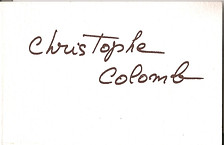 Christophe
Colomb